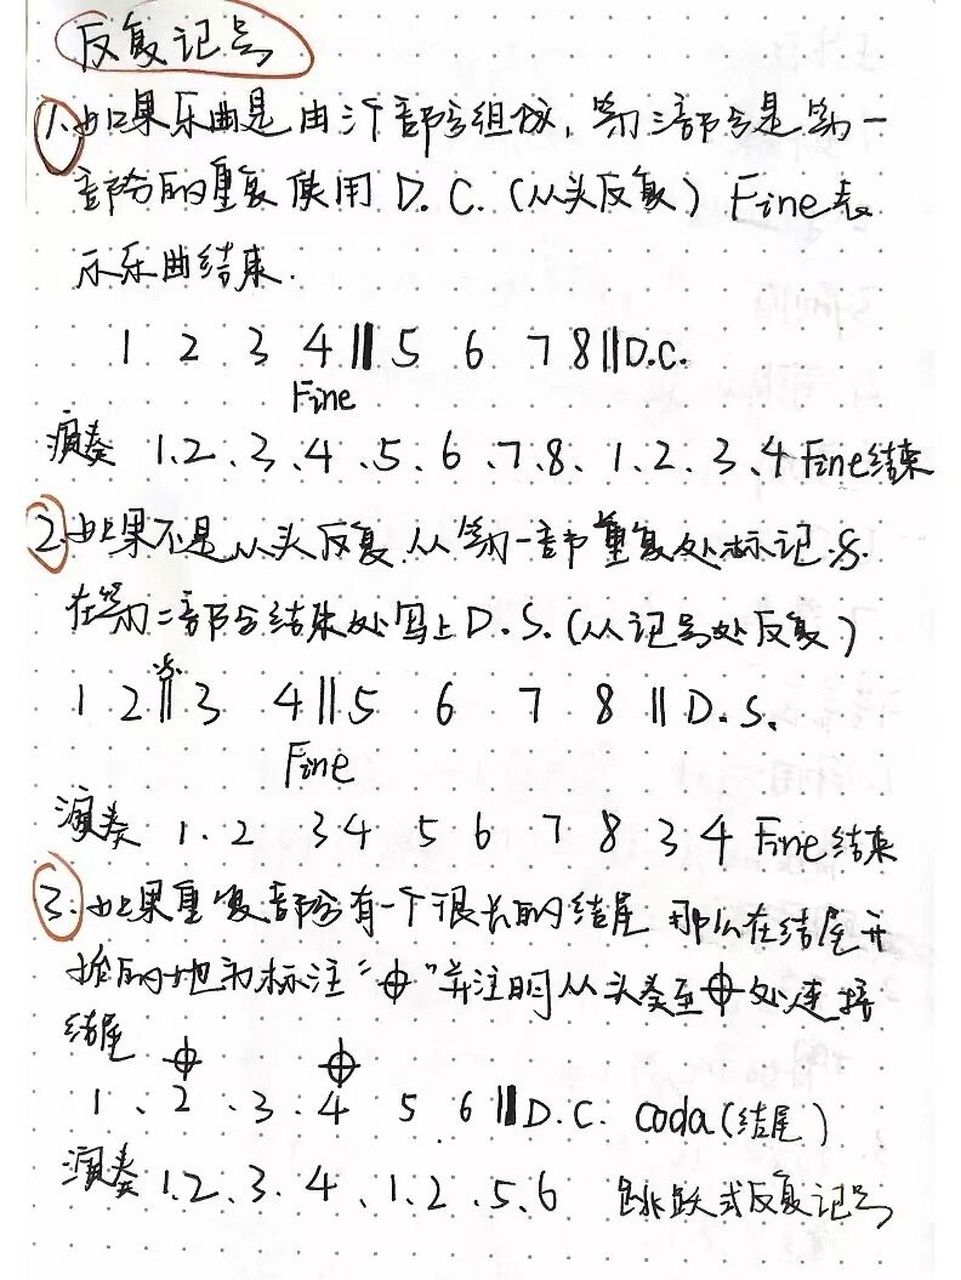 反复记号
1. 如果乐曲是由三个部分组成，第三部分是第一
部分的重复使用 D.C.(从头反复) Fine表
示乐曲结束.
1 2 3 4 || 5 6 7 8 || D.C.
Fine
演奏 1、2、3、4、5、6、7、8、1、2、3、4 Fine结束
2. 如果不是从头反复 从第一部重复处标记 𝄋
在第二部分结束处写上 D.S.(从记号处反复)
𝄋
1 2 || 3 4 || 5 6 7 8 || D.S.
Fine
演奏 1、2 3 4 5 6 7 8 3 4 Fine结束
3. 如果重复部分有一个很长的结尾 那么在结尾开
始的地方标注“𝄌”并注明从头奏至𝄌处连接
结尾
𝄌 𝄌
1、2、3、4 5 6 || D.C. Coda(结尾)
演奏 1、2、3、4、1、2、5、6 跳跃式反复记号